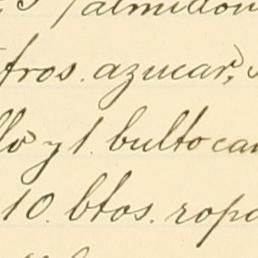 almidon
fros. azucar,
llo y 1. bulto ca
10. btos. ropa